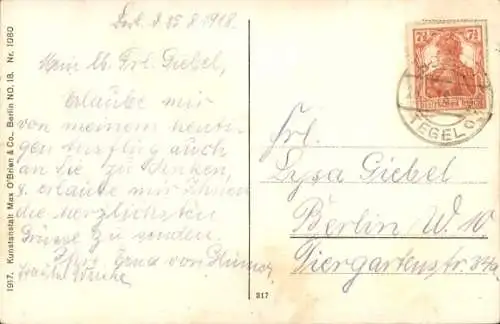 d. 25/8.1918.
Mein lb. Frl. Giebel,
Erlaube mir
von meinem heuti-
gen Ausflug auch
an Sie zu denken,
u. erlaube mir Ihnen
die herzlichsten
Grüsse zu senden.
Ihre Erna von
7½ 7½
TEGEL
Frl.
Lysa Giebel
Berlin W. 10
Tiergartenstr. 34a
1917. Kunstanstalt Max O'Brien & Co., Berlin NO. 18. Nr. 1080
217